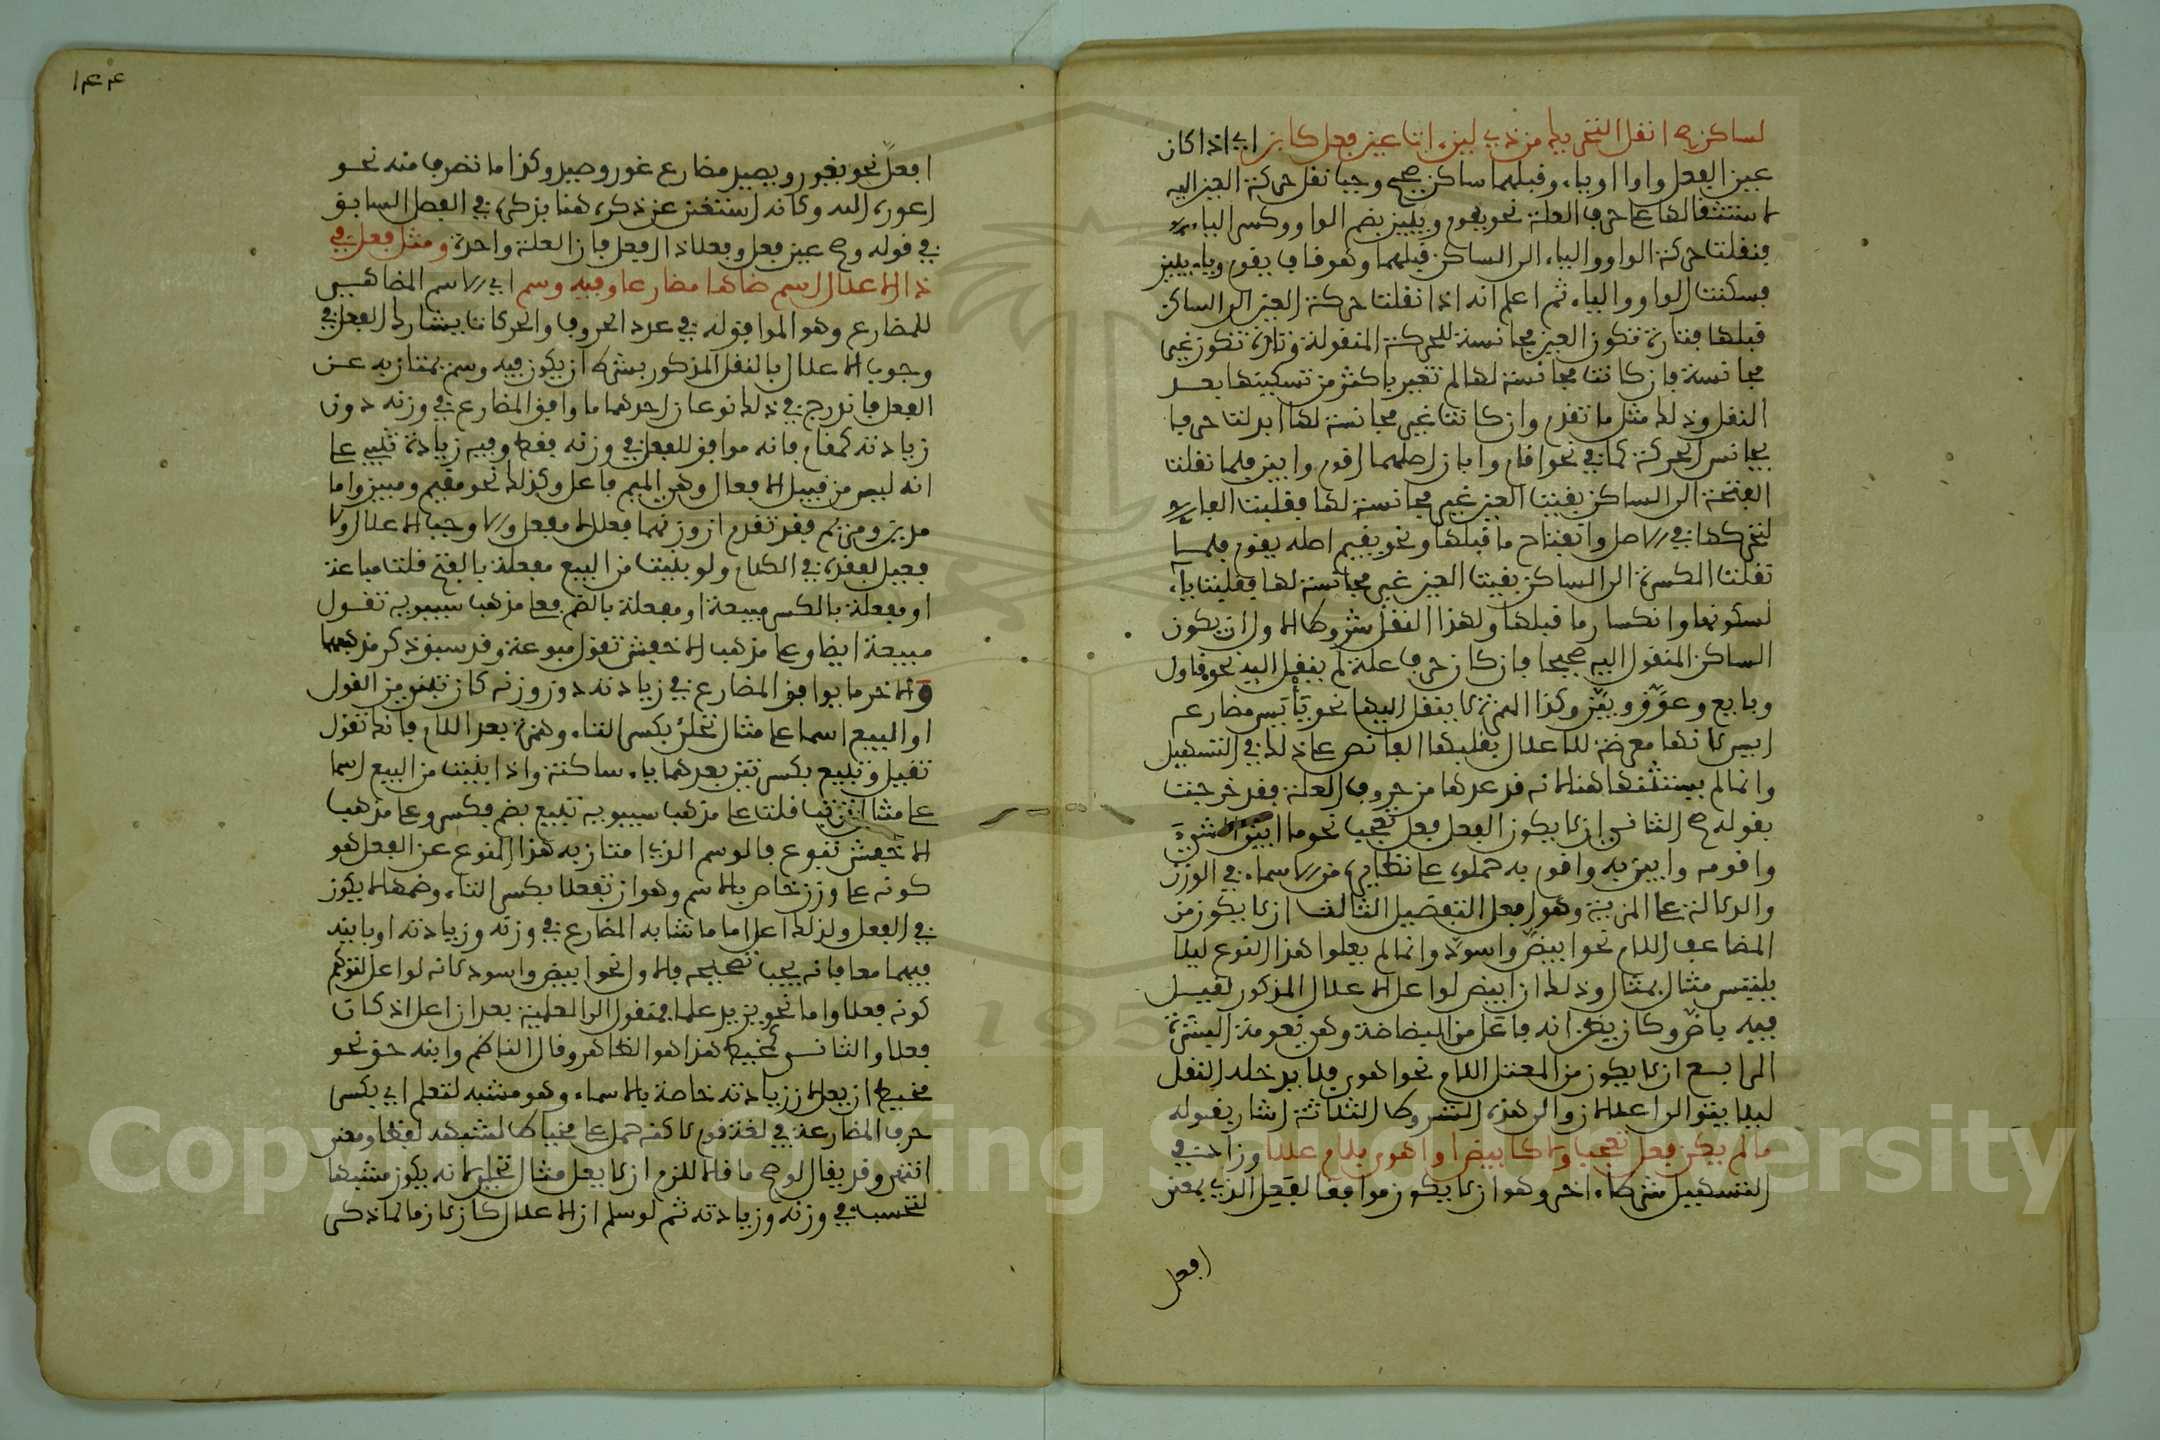 لساكن صح انقل التحريك من ذي لين ات عين فعل كابن اي اذا كان
عين الفعل واوا او ياء وقبلهما ساكن صحيح وجب نقل حركة العين اليه
لاستثقالها على حرف العلة نحو يقوم ويبين بضم الواو وكسر الياء
فنقلت حركة الواو والياء الى الساكن قبلهما وهو قاف يقوم وباء يبين
فسكنت الواو والياء ثم اعلم انه اذا نقلت حركة العين الى الساكن
قبلها فتارة تكون العين مجانسة للحركة المنقولة وتارة تكون غير
مجانسة فان كانت مجانسة لها لم تغير باكثر من تسكينها بعد
النقل وذلك مثل ما تقدم وان كانت غير مجانسة لها ابدلت حرفا
يجانس الحركة كما في نحو اقام وابان اصلهما اقوم وابين فلما نقلت
الفتحة الى الساكن بقيت العين غير مجانسة لها فقلبت الفا
لتحركها في الاصل وانفتاح ما قبلها ونحو يقيم اصله يقوم فلما
نقلت الكسرة الى الساكن بقيت العين غير مجانسة لها فقلبت ياء
لسكونها وانكسار ما قبلها ولهذا النقل شروط الاول ان يكون
الساكن المنقول اليه صحيحا فان كان حرف علة لم ينقل اليه نحو قاول
وبايع وعوق وبين وكذا الهمزة لا ينقل اليها نحو يأيس مضارع
ايس لانها معرضة للاعلال بقلبها الفا نص على ذلك في التسهيل
وانما لم يستثنها هنا لانه قد عدها من حروف العلة فقد خرجت
بقوله صح الثاني ان لا يكون الفعل فعل تعجب نحو ما ابين الشيء
واقومه وابين به واقوم به حملوه على نظايره من الاسماء في الوزن
والدلالة على المزية وهو افعل التفضيل الثالث ان لا يكون من
المضاعف اللام نحو ابيض واسود وانما لم يعلوا هذا النوع ليلا
يلتبس مثال بمثال وذلك ان ابيض لو اعل الاعلال المذكور لقيل
فيه باض وكان يظن انه فاعل من البضاضة وهي نعومة البشرة
الرابع ان لا يكون من المعتل اللام نحو اهوى فلا يدخله النقل
ليلا يتوالى اعلالان والى هذه الشروط الثلاثة اشار بقوله
ما لم يكن فعل تعجب ولا كابيض او اهوى بلام عللا وزاد في
التسهيل شرطا اخر وهو ان لا يكون موافقا لفعل الذي بمعنى
افعل
١٤٤
افعل نحو يعور ويصيد مضارع عور وصيد وكذا ما تصرف منه نحو
اعوره الله وكانه استغنى عن ذكره هنا بذكره في الفصل السابق
في قوله وصح عين فعل وفعلا ذا افعل فان العلة واحدة ومثل فعل في
ذا الاعلال اسم ضاها مضارعا وفيه وسم اي الاسم المضاهي
للمضارع وهو الموافق له في عدد الحروف والحركات يشارك الفعل في
وجوب الاعلال بالنقل المذكور بشرط ان يكون فيه وسم يمتاز به عن
الفعل فاندرج في ذلك نوعان احدهما ما وافق المضارع في وزنه دون
زيادته كمقام فانه موافق للفعل في وزنه فقط وفيه زيادة تنبيه على
انه ليس من قبيل الافعال وهي الميم فاعل وكذلك نحو مقيم ومبين واما
مدين ومريم فقد تقدم ان وزنهما فعلل لا مفعل والا وجب الاعلال ولا
فعيل لفقده في الكلام ولو بنيت من البيع مفعلة بالفتح قلت مباعة
او مفعلة بالكسر مبيعة او مفعلة بالضم فعلى مذهب سيبويه تقول
مبيعة ايضا وعلى مذهب الاخفش تقول مبوعة وقد سبق ذكر مذهبهما
والاخر ما يوافق المضارع في زيادته دون وزنه كان تبني من القول
او البيع اسما على مثال تحلئ بكسر التاء وهمزة بعد اللام فانك تقول
تقيل وتبيع بكسرتين بعدهما ياء ساكنة واذا بنيت من البيع اسما
على مثال ترتب قلت على مذهب سيبويه تبيع بضم فكسر وعلى مذهب
الاخفش تبوع فالوسم الذي امتاز به هذا النوع عن الفعل هو
كونه على وزن خاص بالاسم وهو ان تفعلا بكسر التاء وضمها لا يكون
في الفعل ولذلك اعل اما ما شابه المضارع في وزنه وزيادته او باينه
فيهما معا فانه يجب تصحيحه فالاول نحو ابيض واسود لانه لو اعل لتوهم
كونه فعلا واما نحو يزيد علما فمنقول الى العلمية بعد ان اعل اذ كان
فعلا والثاني كمخيط هذا هو الظاهر وقال الناظم وابنه حق نحو
مخيط ان يعل لان زيادته خاصة بالاسماء وهو مشبه لتعلم اي بكسر
حرف المضارعة في لغة قوم لاكنه حمل على مخياط لشبهه لفظا ومعنى
انتهى وقد يقال لو صح ما قالا للزم ان لا يعل مثال تحلئ لانه يكون مشبها
لتحسب في وزنه وزيادته ثم لو سلم ان الاعلال كان لازما لما ذكر